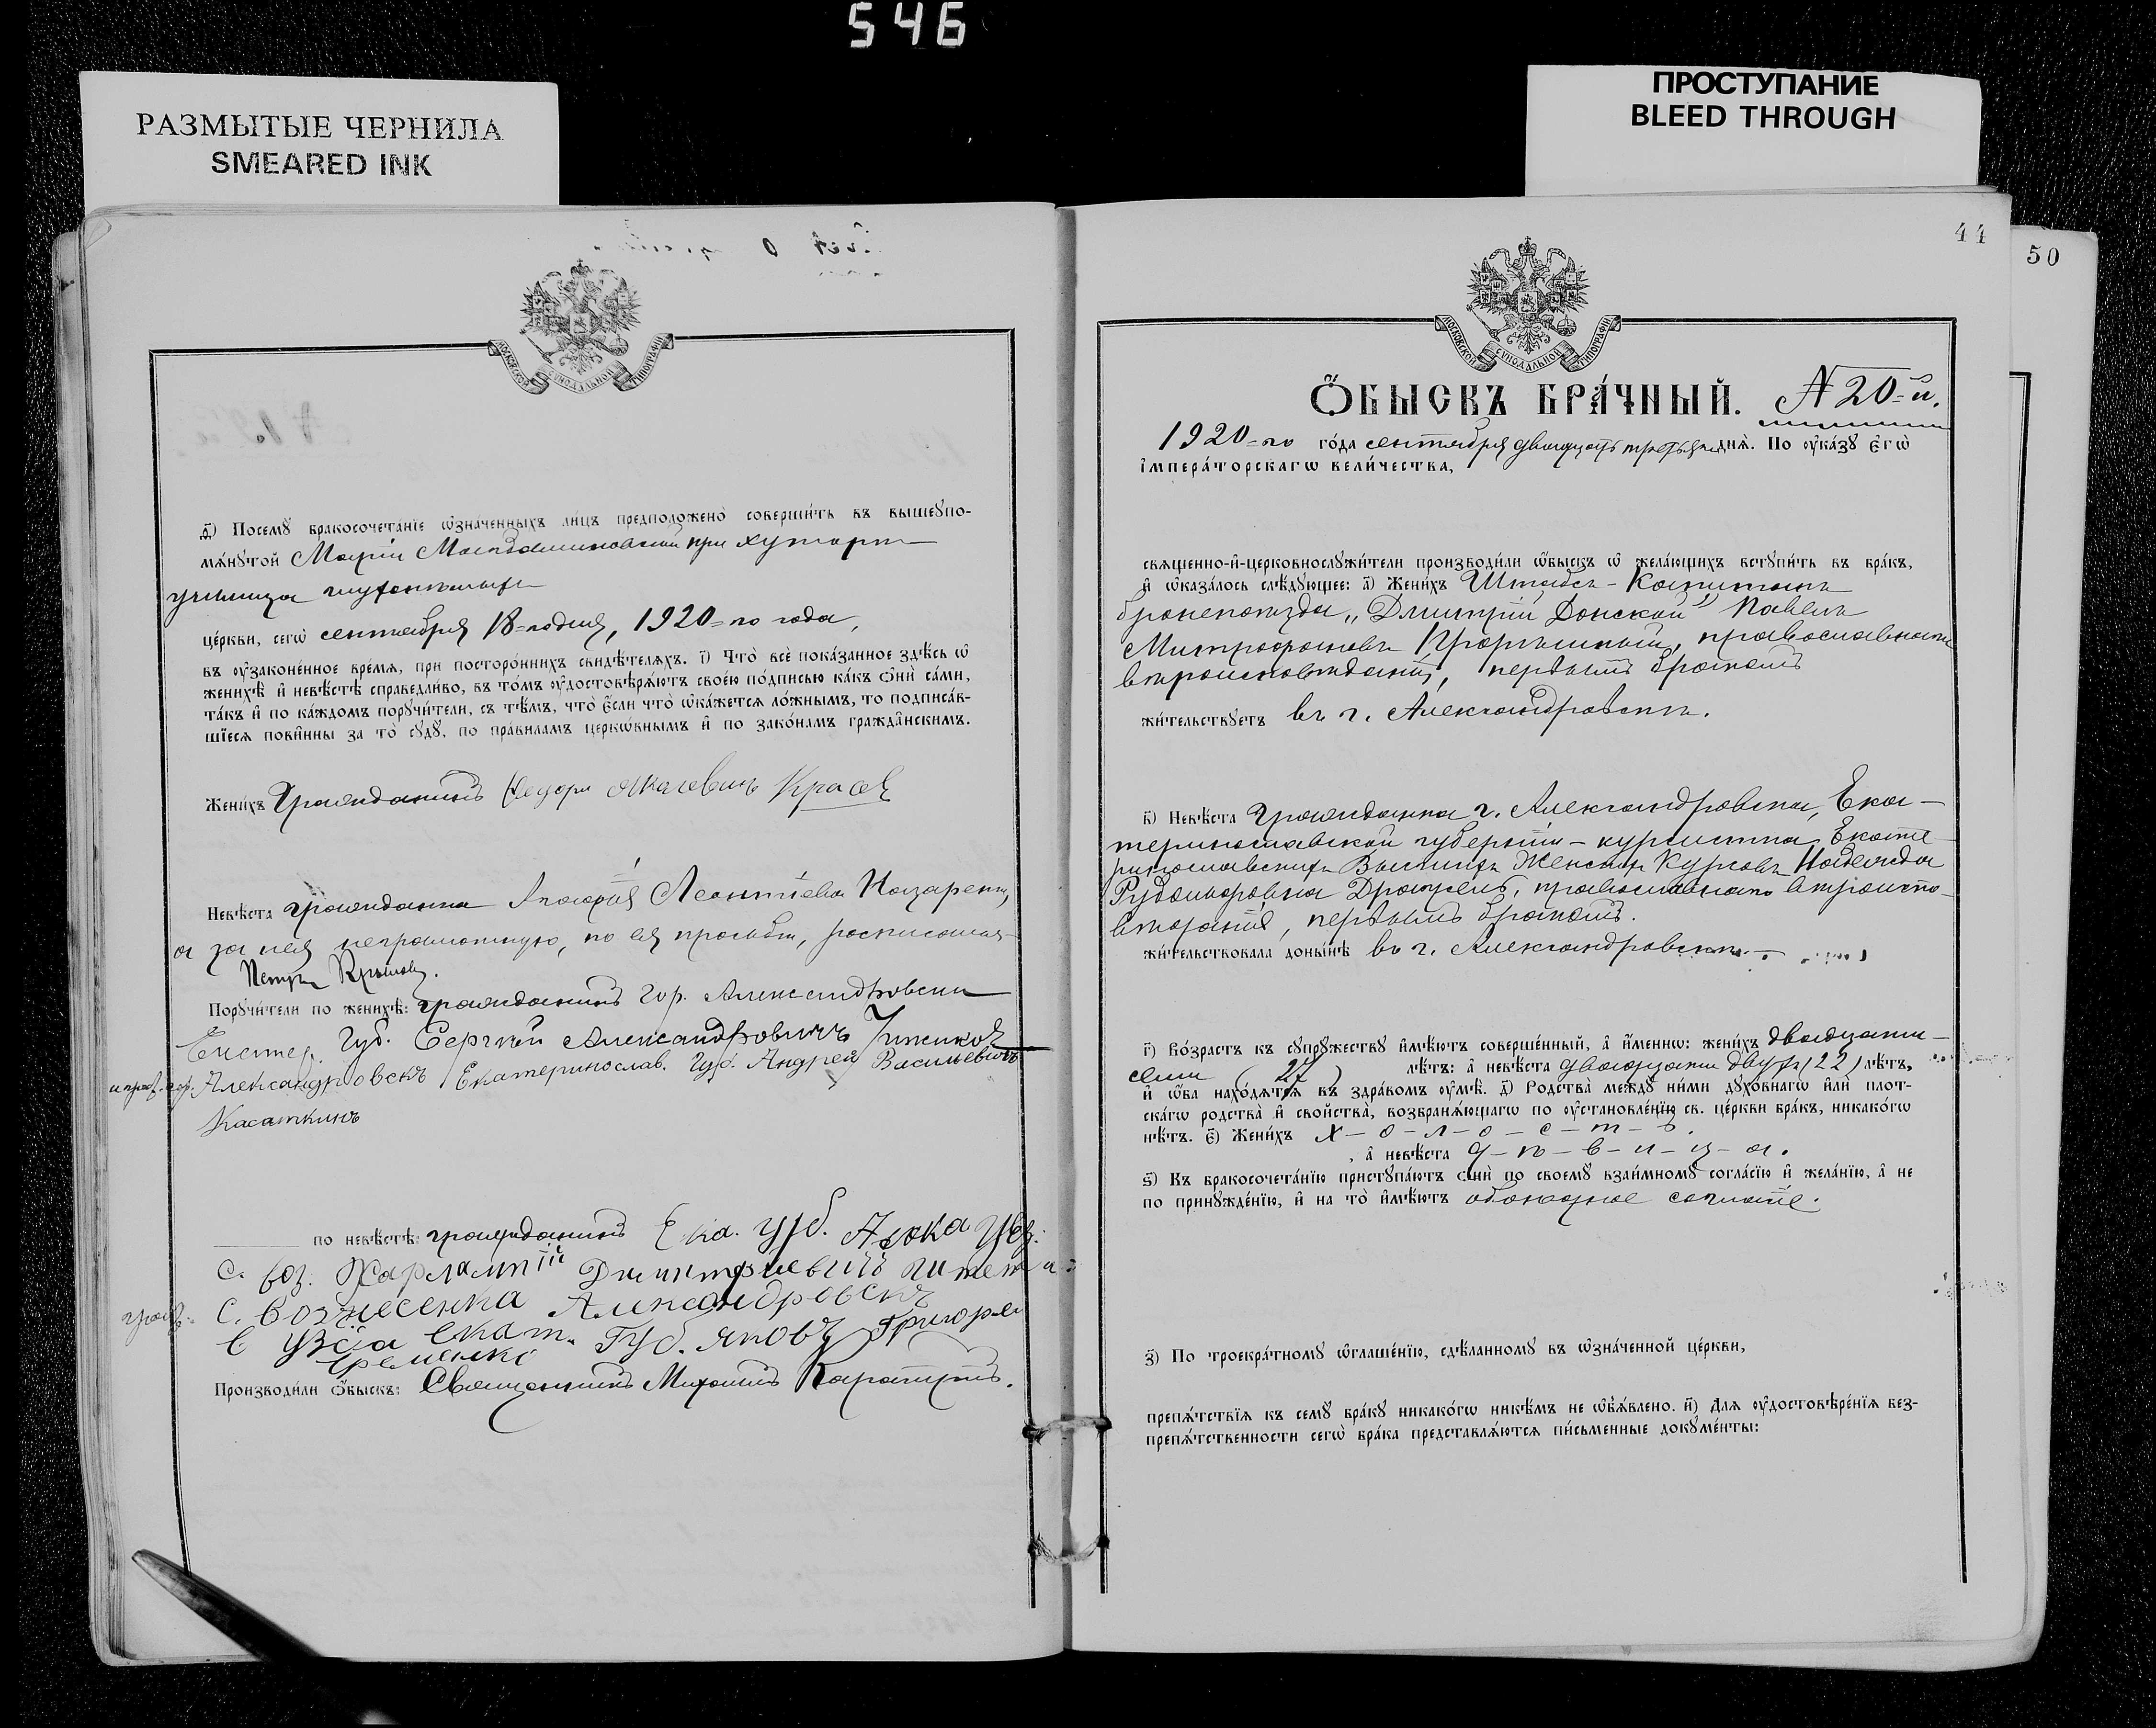 546
РАЗМЫТЫЕ ЧЕРНИЛА
SMEARED INK
ПРОСТУПАНИЕ
BLEED THROUGH
МОСКОВСКОЙ СѴНОДАЛЬНОЙ ТИПОГРАФІИ
ѳ҃) Посемꙋ̀ бракосочета́нїе ѡ҆зна́ченныхъ ли́цъ предположено̀ соверши́ть въ вышеꙋпо-
мѧ́нꙋтой Маріи Магдалиновской при хуторѣ
училища
це́ркви, сегѡ̀ сентября 18=го дня, 1920=го года,
въ ᲂу҆зако́ненное вре́мѧ, при посторо́ннихъ свидѣ́телѧхъ. і҃) Что̀ всѐ пока́занное здѣ́сь ѡ҆
женихѣ̀ и҆ невѣ́стѣ справедли́во, въ то́мъ ᲂу҆достовѣрѧ́ютъ свое́ю по́дписью ка́къ ѻ҆нѝ са́ми,
та́къ и҆ по ка́ждомъ порꙋчи́тели, съ тѣ́мъ, что̀ є҆́сли что̀ ѡ҆ка́жетсѧ ло́жнымъ, то подписа́в-
шїесѧ пови́нны за то̀ сꙋдꙋ̀, по пра́виламъ церко́внымъ и҆ по зако́намъ гражда́нскимъ.
Жени́хъ Гражданинъ Федоръ Красе
Невѣ́ста гражданка Леонтіева Назаренко,
а за нея неграмотную, по ея просьбѣ, росписался
Петръ Крылов.
Порꙋчи́тели по женихѣ̀: гражданинъ гор. Александровска
Екатер. Губ. Сергѣй Александровичъ
гор. Александровскъ Екатеринослав. Губ. Андрей Васильевичъ
Касаткинъ
по невѣ́стѣ: гражданинъ Ека. губ. Алека уѣз.
с. воз. Харлампій Дмитриевичъ
гражд. с. Вознесенка Александровскъ
уѣзда Екат. Губ. Яковъ Григорев
Еременко
Производи́ли ѻ҆́быскъ: Священникъ Михаилъ
44
50
МОСКОВСКОЙ СѴНОДАЛЬНОЙ ТИПОГРАФІИ
Ѻ҆́БЫСКЪ БРА́ЧНЫЙ. № 20=й.
1920=го го́да сентября двадцать третьяго днѧ̀. По ᲂу҆ка́зꙋ є҆гѡ̀
і҆мпера́торскагѡ вели́чества,
свѧще́нно-и҆-церковнослꙋжи́тели производи́ли ѡ҆́быскъ ѡ҆ жела́ющихъ встꙋпи́ть въ бра́къ,
и҆ ѡ҆каза́лось слѣ́дꙋющее: а҃) Жени́хъ Штабсъ-Капитанъ
бронепоѣзда „Дмитрій Донской" Павелъ
Митрофановъ православнаго
вѣроисповѣданія, первымъ бракомъ
жи́тельствꙋетъ въ г. Александровскѣ.
в҃) Невѣ́ста Гражданка г. Александровска, Ека-
теринославской губерніи - курсистка Екате-
ринославскихъ Высшихъ Женскихъ Курсовъ Надежда
Рудольфовна православнаго вѣроиспо-
вѣданія, первымъ бракомъ.
жи́тельствовала доны́нѣ въ г. Александровскѣ.
г҃) Во́зрастъ къ сꙋпрꙋ́жествꙋ и҆мѣ́ютъ соверше́нный, а҆ и҆́менно: жени́хъ двадцати
семи (27) лѣ́тъ: а҆ невѣ́ста двадцати двухъ (22) лѣ́тъ,
и҆ ѡ҆́ба нахо́дѧтсѧ въ здра́вомъ ᲂу҆мѣ̀. д҃) Родства̀ междꙋ̀ ни́ми дꙋхо́внагѡ и҆лѝ пло́т-
скагѡ родства̀ и҆ сво́йства̀, возбранѧ́ющагѡ по ᲂу҆становле́нїю св. це́ркви бра́къ, никако́гѡ
нѣ́тъ. є҃) Жени́хъ х-о-л-о-с-т-ъ.
, а҆ невѣ́ста д-ѣ-в-и-ц-а.
ѕ҃) Къ бракосочета́нїю пристꙋпа́ютъ ѻ҆нѝ по своемꙋ̀ взаи́мномꙋ согла́сїю и҆ жела́нїю, а҆ не
по принꙋжде́нїю, и҆ на то̀ и҆мѣ́ютъ обоюдное согласіе.
з҃) По троекра́тномꙋ ѡ҆глаше́нїю, сдѣ́ланномꙋ въ ѡ҆зна́ченной це́ркви,
препѧ́тствїѧ къ семꙋ̀ бра́кꙋ никако́гѡ никѣ́мъ не ѡ҆б̾ѧ́влено. и҃) Длѧ ᲂу҆достовѣре́нїѧ без-
препѧ́тственности сегѡ̀ бра́ка представлѧ́ютсѧ пи́сьменные докꙋме́нты: